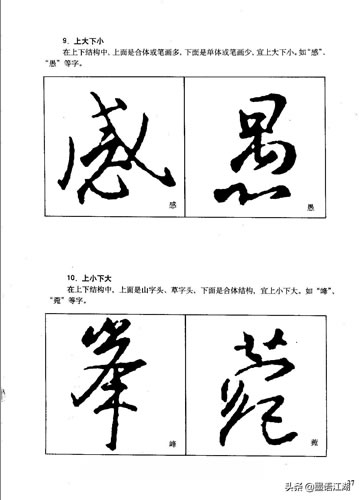 9．上大下小
在上下结构中，上面是合体或笔画多，下面是单体或笔画少，宜上大下小。如“感”、
“愚”等字。
感 愚
感 愚
10．上小下大
在上下结构中，上面是山字头、草字头，下面是合体结构，宜上小下大。如“峰”、
等字。
峰
37
头条@墨语江湖